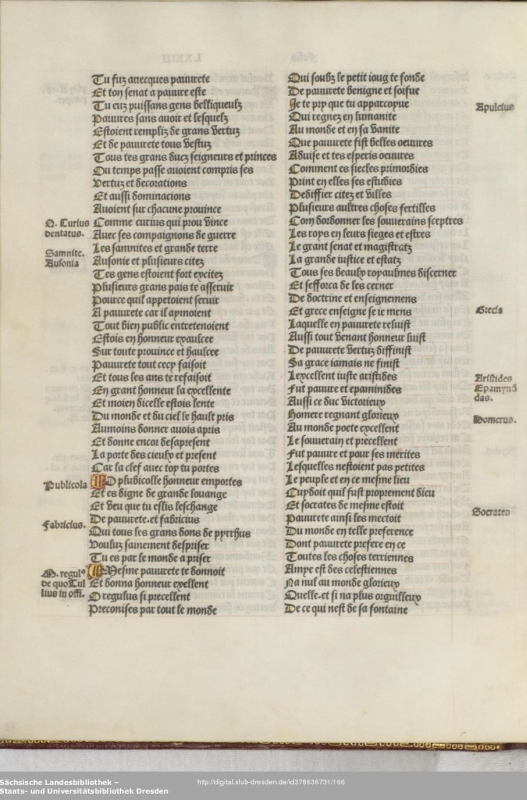 Tu fuz avecques pauurete
Et ton senat a pauure este
Tu euz puissans gens belliqueulx
Pauures sans auoir et lesquelz
Estoient rempliz de grans vertuz
Et de pauurete tous vestuz
Tous tes grans ducz seigneurs et princes
Ou temps passe auoient compris ses
Vertuz et decorations
Et aussi dominacions
Auoient sur chacune prouince
Q. Curius dentatus.
Comme curius qui prou vince
Auec ses compaignons de guerre
Samnite. Ausonia
Les samnites et grande terre
Ausonie et plusieurs citez
Tes gens estoient fort excitez
Plusieurs grans pais te asseruir
Pource quil appetoient seruir
A pauurete car il aymoient
Tout bien public entretenoient
Estois en honneur exaulcee
Sur toute prouince et haulcee
Pauurete tout cecy faisoit
Et tous ses ans te refaisoit
En grant honneur la excellente
Et moien dicelle estois lente
Du monde et du ciel le hault pris
Aumoins donner auois apris
Et donne encor desapresent
La porte des cieulx et present
Car la clef auec toy tu portes
Publicola
O plubicolle honneur emportes
Et es digne de grande louange
Et veu que tu eslis leschange
De pauurete. et fabricius
Fabricius.
Qui tous les grans dons de pyrrhus
Voulut sainement despriser
Tu es par le monde a priser
M. regulꝰ de quo Tullius in offi.
Mesme pauurete te donnoit
Et donna honneur excellent
O regulus si precellent
Preconises par tout le monde
Qui soubz le petit ioug te fonde
De pauurete benigne et soifue
Apuleius
Je te pry que tu apparcoyue
Qui regnez en humanite
Au monde et en sa vanite
Que pauurete fist belles oeuures
Aduise et tes esperis oeuures
Comment es siecles primordies
Print en elles ses estudies
Dediffier citez et villes
Plusieurs aultres choses fertilles
Com dordonner les souuerains sceptres
Les roys en leurs sieges et estres
Le grant senat et magistratz
La grande iustice et estatz
Tous ses beaulx royaulmes discerner
Et sefforca de les cerner
De doctrine et enseignemens
Grecia
Et grece enseigne se ie mens
Laquelle en pauurete reluist
Aussi tout venant honneur suist
De pauurete vertuz diffinist
Sa grace iamais ne finist
Lexcellent iuste aristides
Aristides Epamynũdas.
Fut pauure et epaminides
Aussi ce duc victorieux
Homerus.
Homere regnant glorieux
Au monde poete excellent
Le souuerain et precellent
Fut pauure et pour ses merites
Lesquelles nestoient pas petites
Le peuple et en ce mesme lieu
Cuydoit quil fust proprement dieu
Et socrates de mesme estoit
Socrates
Pauurete ainsi les mectoit
Du monde en telle preference
Dont pauurete prefere en ce
Toutes les choses terriennes
Ampe est des celestiennes
Na nul au monde glorieux
Quelle. et si na plus orguilleux
De ce qui nest de sa fontaine
Sächsische Landesbibliothek –
Staats- und Universitätsbibliothek Dresden
http://digital.slub-dresden.de/id378636731/166